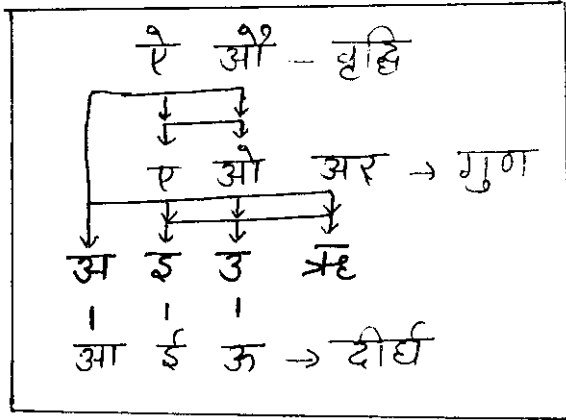 ऐ औ - वृद्धि
ए ओ अर → गुण
अ इ उ ऋ
आ ई ऊ → दीर्घ